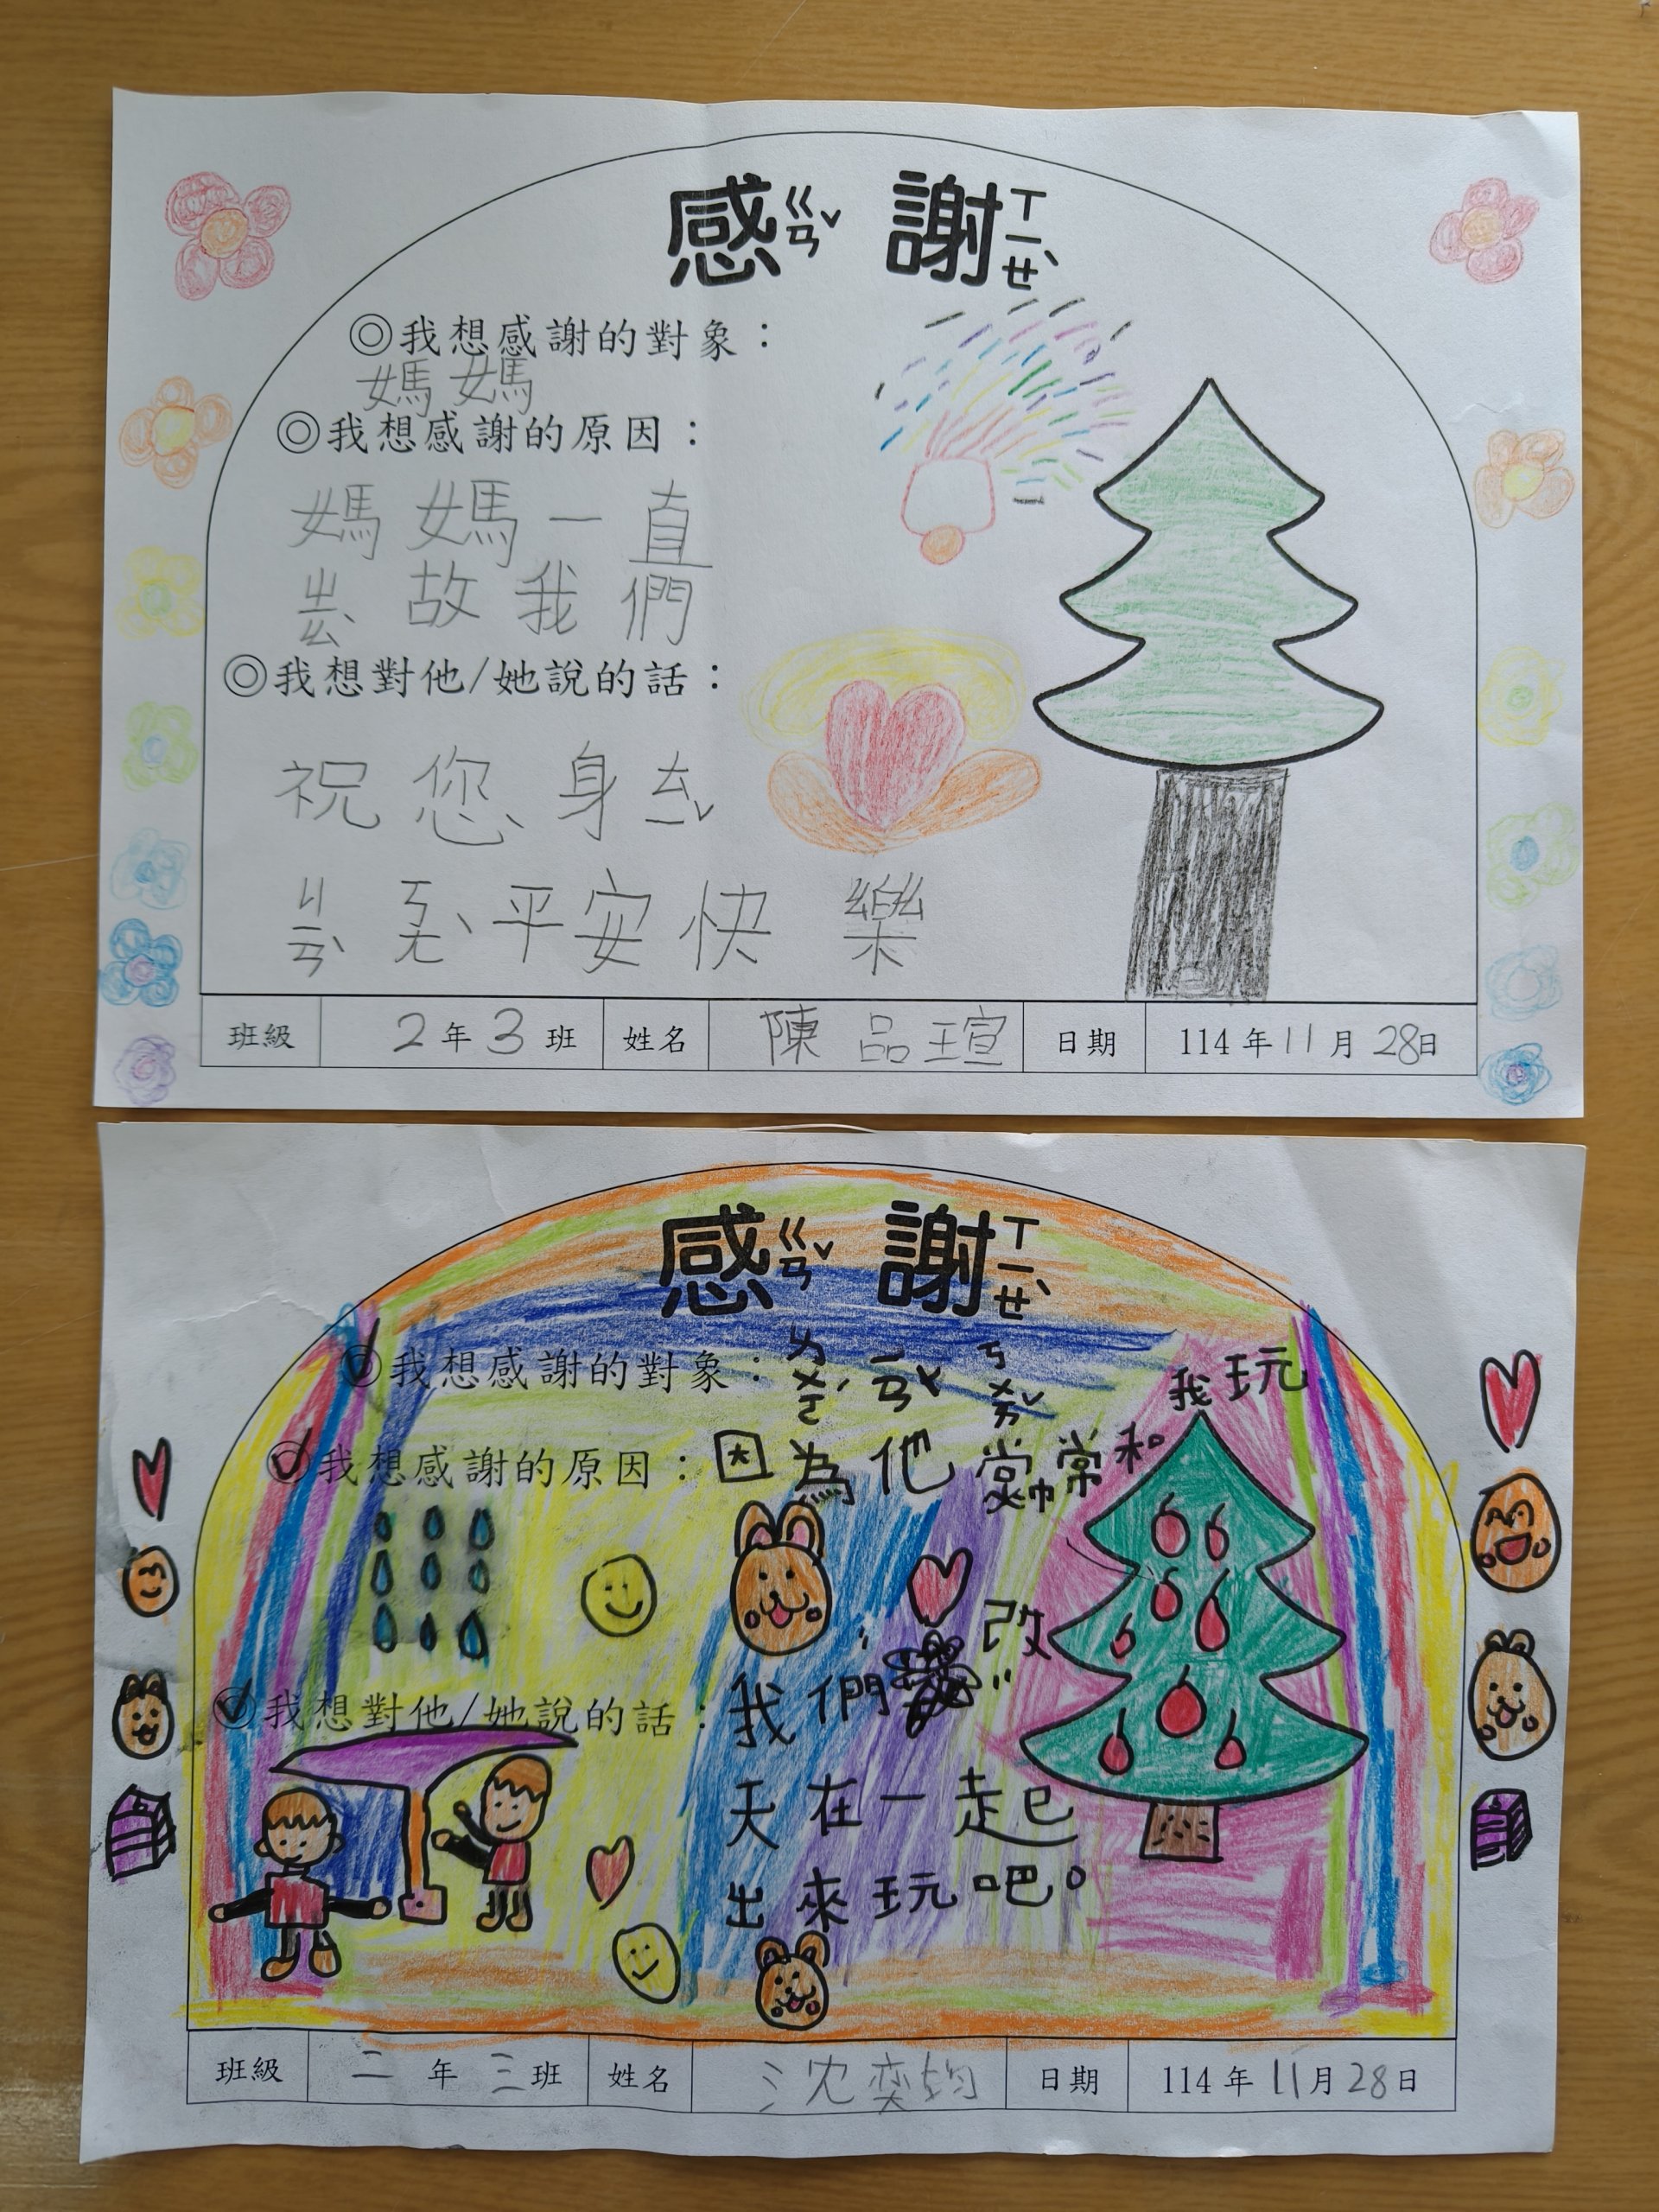 感ㄍㄢˇ 謝ㄒㄧㄝˋ
◎我想感謝的對象：
媽媽
◎我想感謝的原因：
媽媽一直
ㄓㄠˋ故我們
◎我想對他/她說的話：
祝您身ㄊㄧˇ
ㄐㄧㄢˋ平安快樂
班級 2年3班 姓名 陳品瑄 日期 114年11月28日
感ㄍㄢˇ 謝ㄒㄧㄝˋ
我想感謝的對象：
我想感謝的原因：因為他常常和
我玩
改
我想對他/她說的話：我們
天在一起
出來玩吧。
班級 二年三班 姓名 沈奕均 日期 114年11月28日